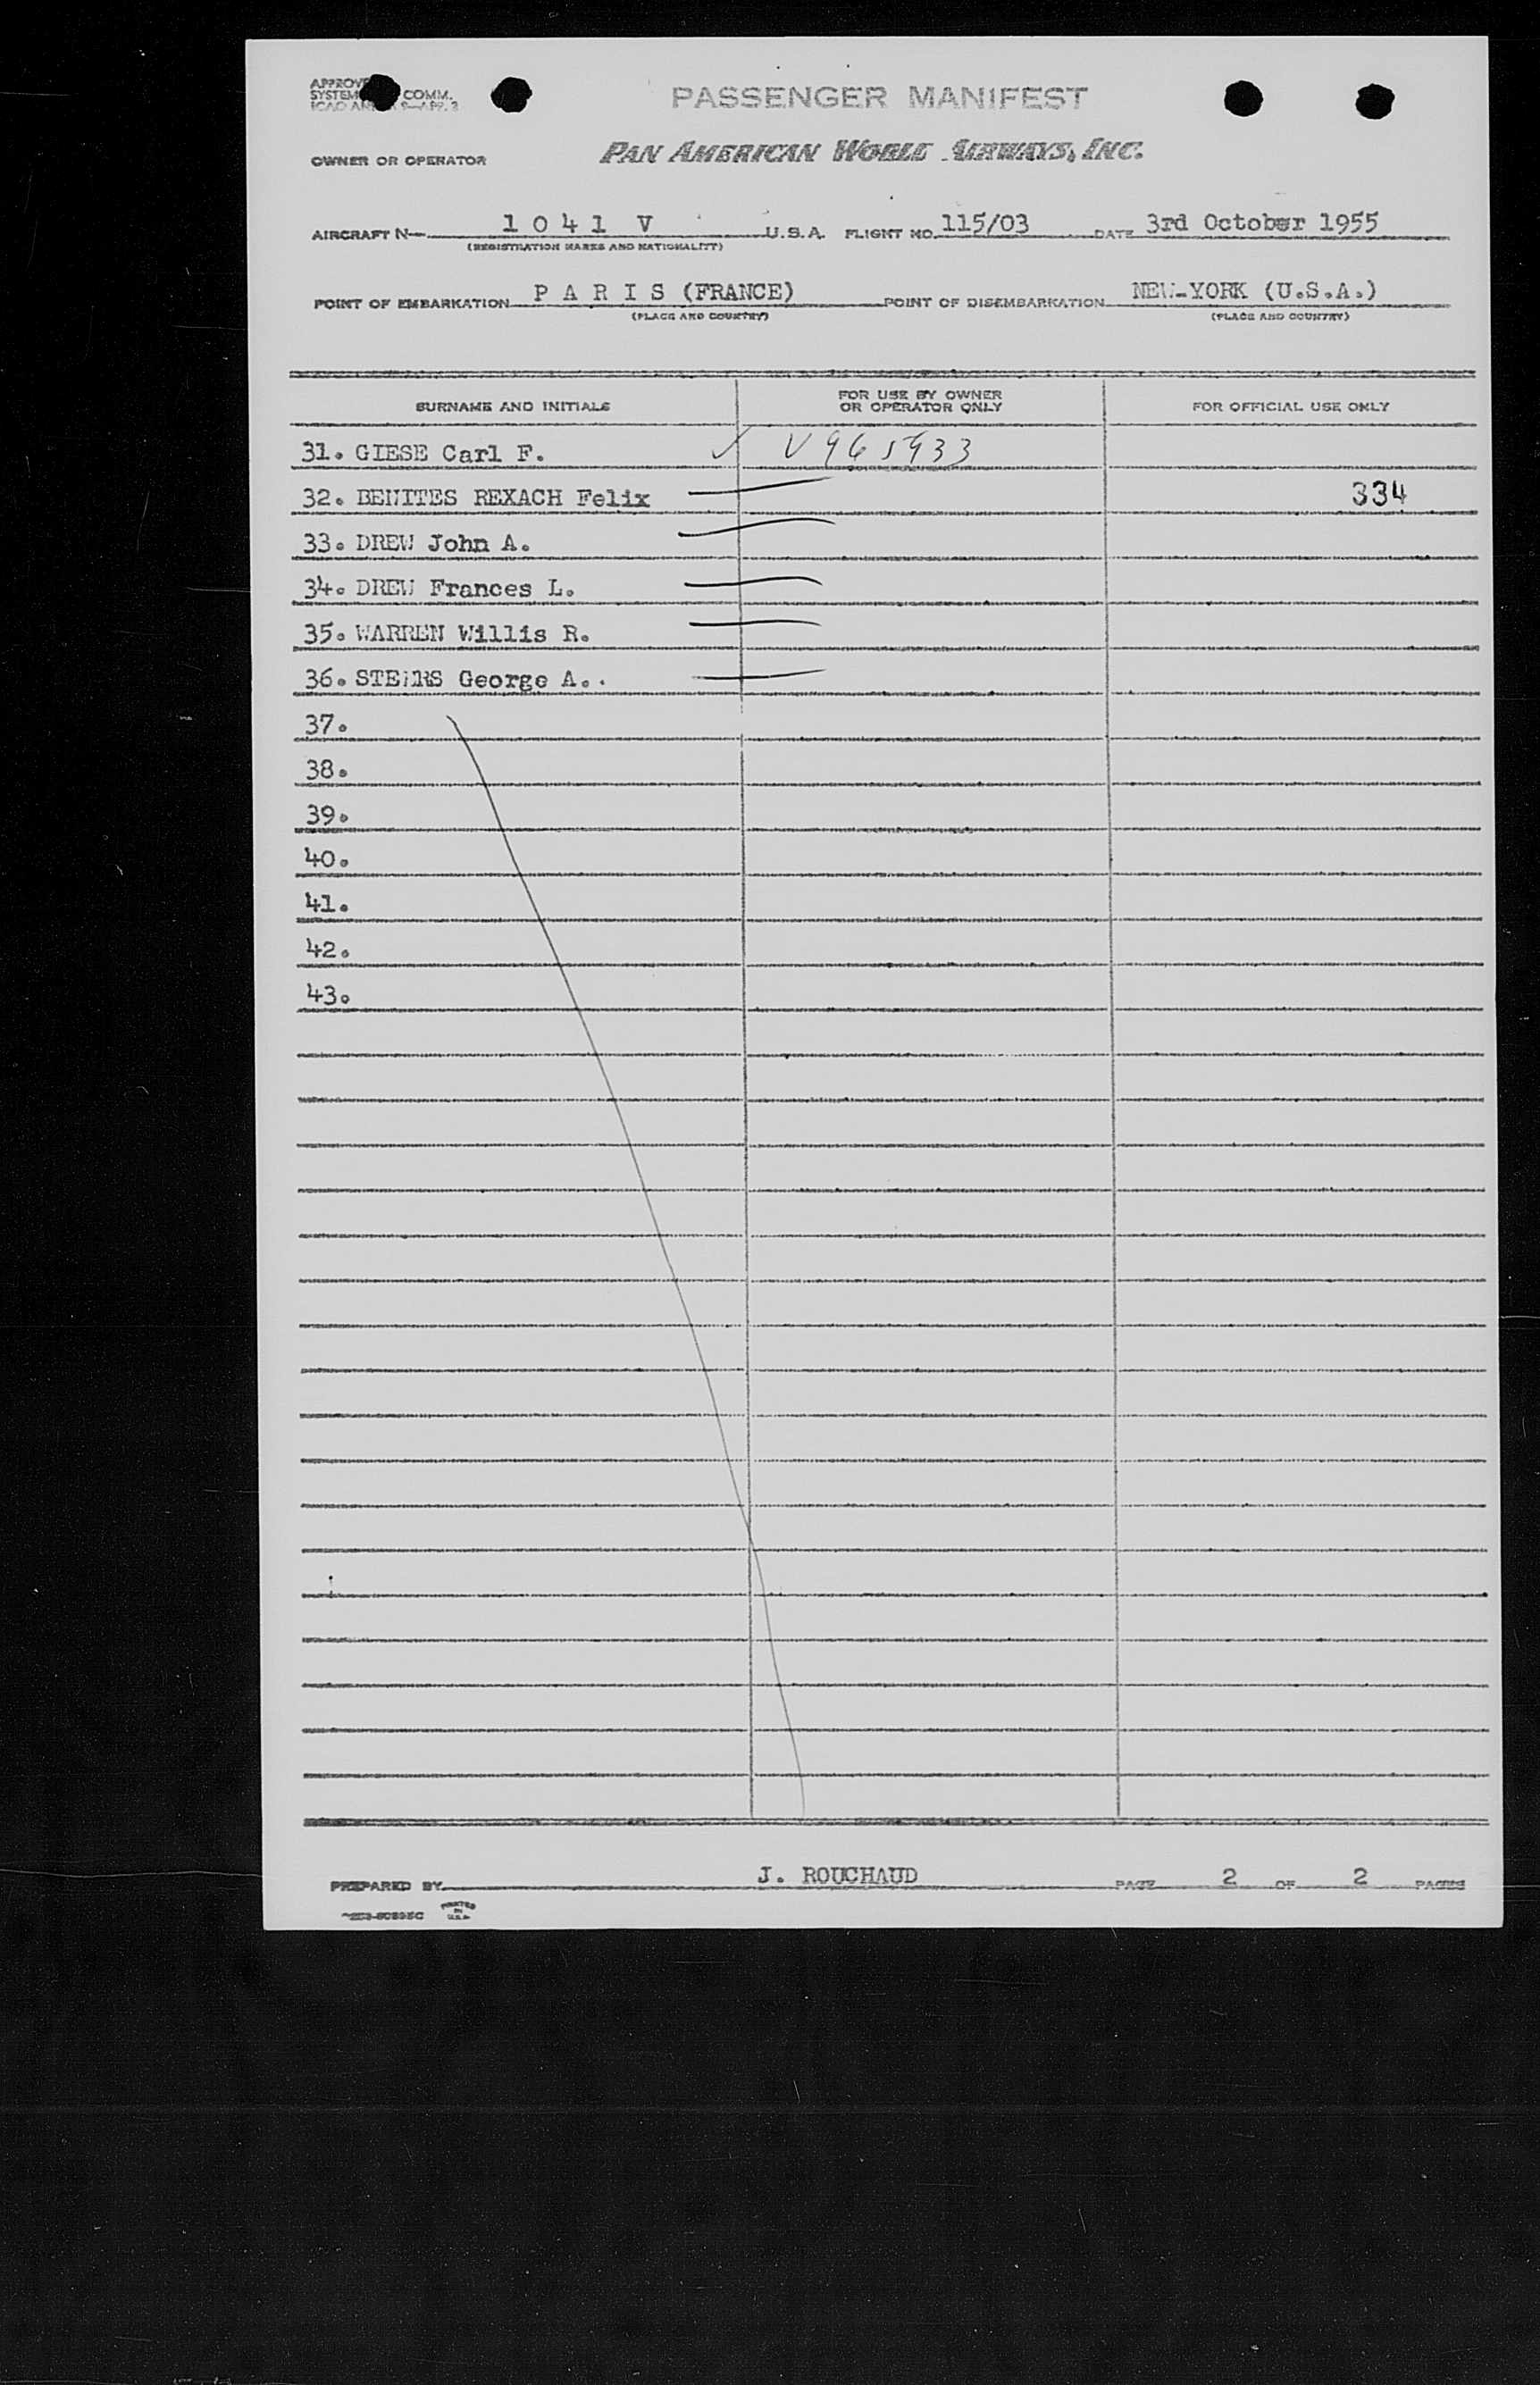 PASSENGER MANIFEST
COMM.
OWNER OR OPERATOR PAN AMERICAN WORLD AIRWAYS, INC.
AIRCRAFT N- 1 0 4 1 V U.S.A. FLIGHT NO. 115/03 DATE 3rd October 1955
(REGISTRATION MARKS AND NATIONALITY)
POINT OF EMBARKATION P A R I S (FRANCE) POINT OF DISEMBARKATION NEW-YORK (U.S.A.)
(PLACE AND COUNTRY) (PLACE AND COUNTRY)
SURNAME AND INITIALS FOR USE BY OWNER OR OPERATOR ONLY FOR OFFICIAL USE ONLY
31. GIESE Carl F. ✓ V965933
32. BENITES REXACH Felix 334
33. DREW John A.
34. DREW Frances L.
35. WARREN Willis R.
36. George A.
37.
38.
39.
40.
41.
42.
43.
PREPARED BY J. ROUCHAUD PAGE 2 OF 2 PAGES
PRINTED IN U.S.A.